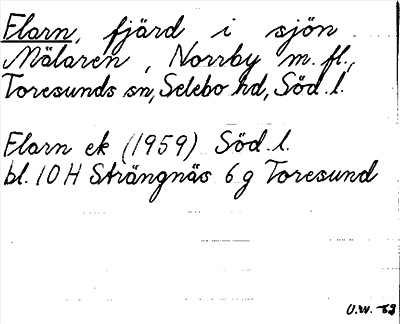 Elarn, fjärd i sjön
Mälaren, Norrby m. fl.,
Toresunds sn, Selebo hd, Söd. l.
Elarn ek (1959) Söd. l.
bl. 10 H Strängnäs 6 g Toresund
U.W. 63